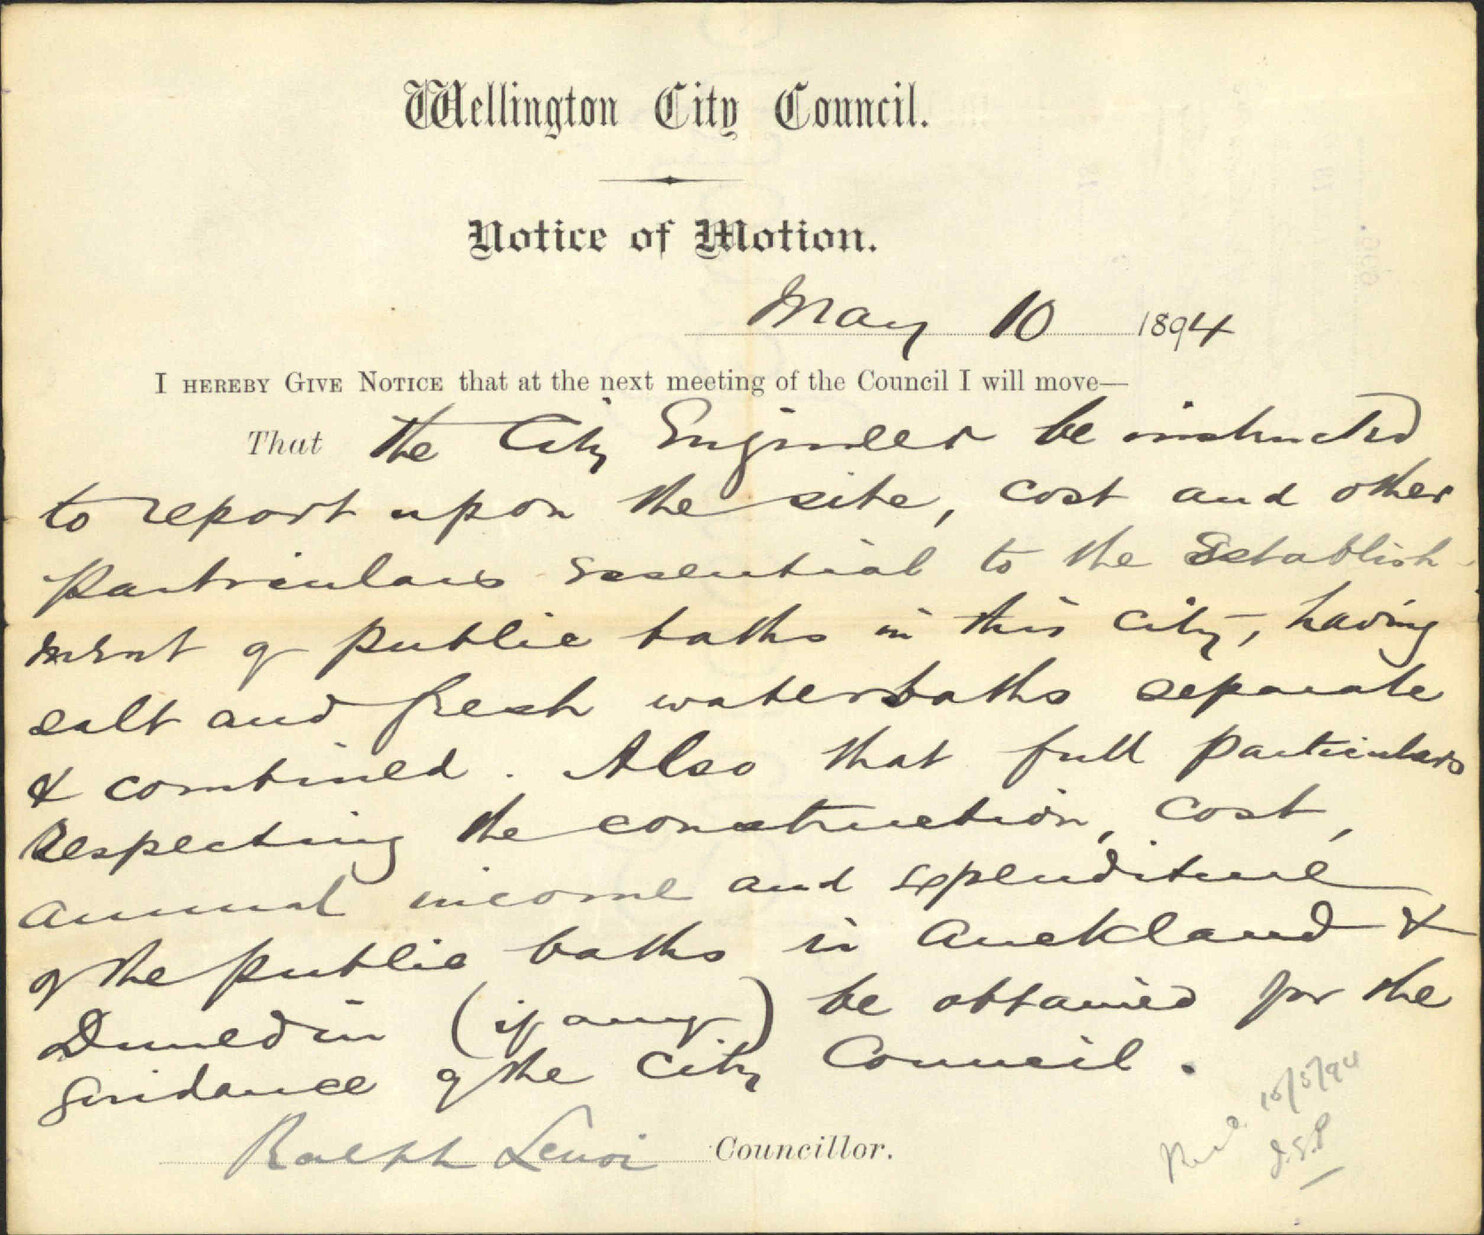 Wellington City Council.
Notice of Motion.
May 10 1894
I HEREBY GIVE NOTICE that at the next meeting of the Council I will move—
That the City Engineer be instructed
to report upon the site, cost and other
particulars essential to the Establish-
ment of public baths in this City, having
salt and fresh water baths separate
& combined. Also that full particulars
respecting the construction, cost,
annual income and expenditure
of the public baths in Auckland &
Dunedin (if any) be obtained for the
Guidance of the City Council.
Ralph Levoi Councillor.
10/5/94
J.S.P